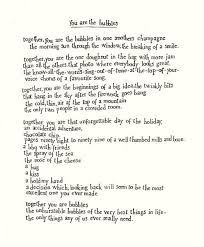 You are the bubbles
together, you are the bubbles in one anothers champagne
the morning sun through the window, the breaking of a smile.
together, you are the one doughnut in the bag with more jam
than all the others, that photo where everybody looks great,
the know-all-the-words-sing-out-of-tune-at-the-top-of-your-
voice chorus of a favourite song.
together, you are the beginnings of a big idea, the twinkly bits
that hang in the sky after the firework goes bang
the cold, thin, air of the top of a mountain
the only two people in a crowded room.
together you are that unforgettable day of the holiday,
an accidental adventure,
chocolate chip,
pages nearly eight to nearly nine of a well thumbed mills and boon
a hug with friends
the spray of the sea
the nose of the cheese
a hug
a kiss
a hold my hand
a decision which, looking back will soon to be the most
excellent one you ever made.
together you are bubbles
the unburstable bubbles of the very best things in life-
the only things any of us ever really need.